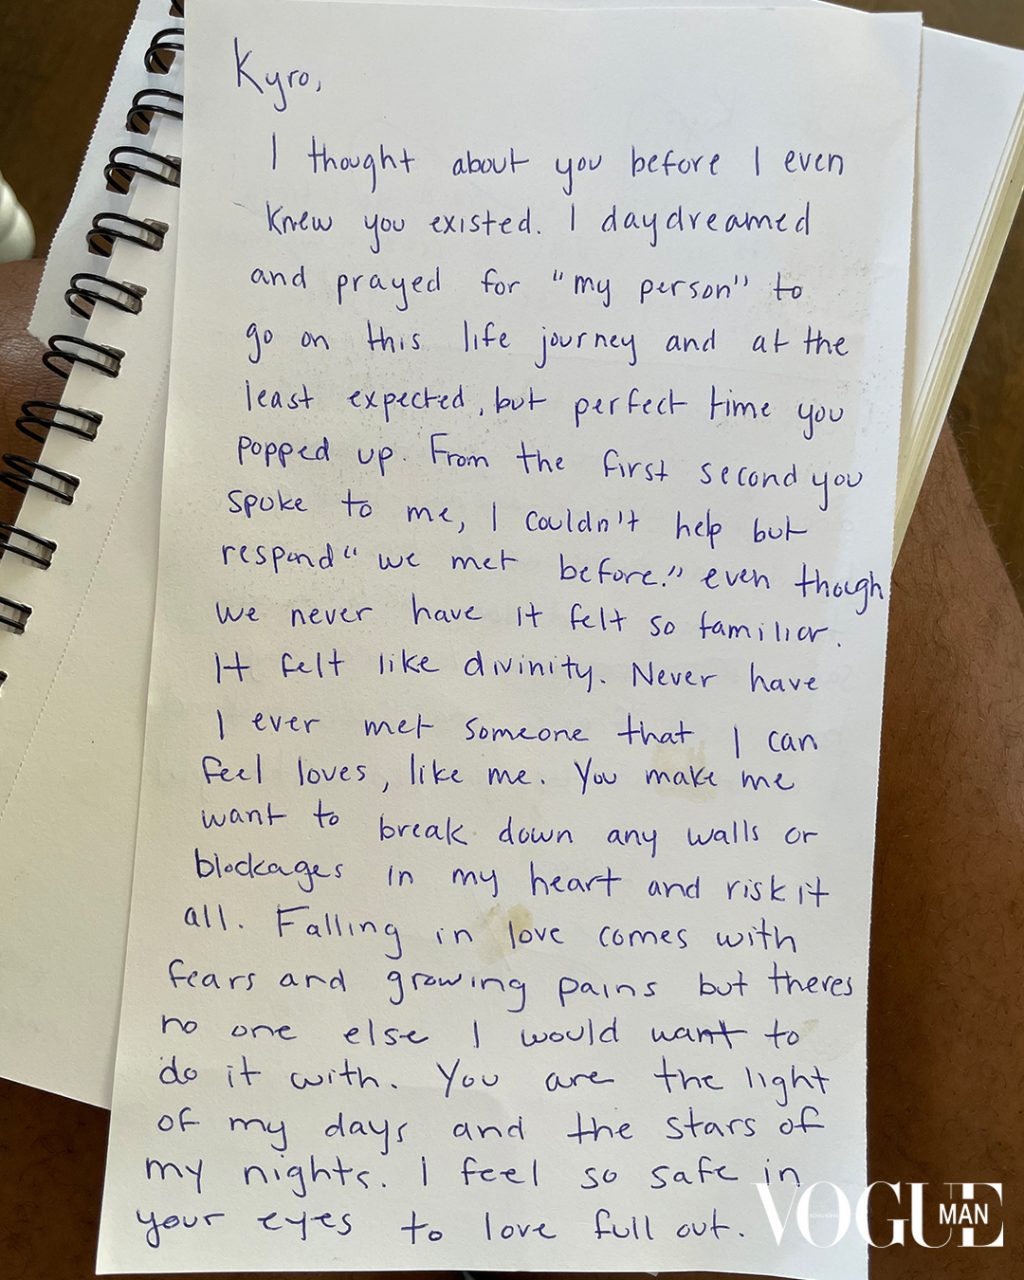 Kyro,
I thought about you before I even
knew you existed. I daydreamed
and prayed for "my person" to
go on this life journey and at the
least expected, but perfect time you
popped up. From the first second you
spoke to me, I couldn't help but
respond "we met before." even though
we never have it felt so familiar.
It felt like divinity. Never have
I ever met someone that I can
feel loves, like me. You make me
want to break down any walls or
blockages in my heart and risk it
all. Falling in love comes with
fears and growing pains but theres
no one else I would want to
do it with. You are the light
of my days and the stars of
my nights. I feel so safe in
your eyes to love full out.
VOGUE MAN